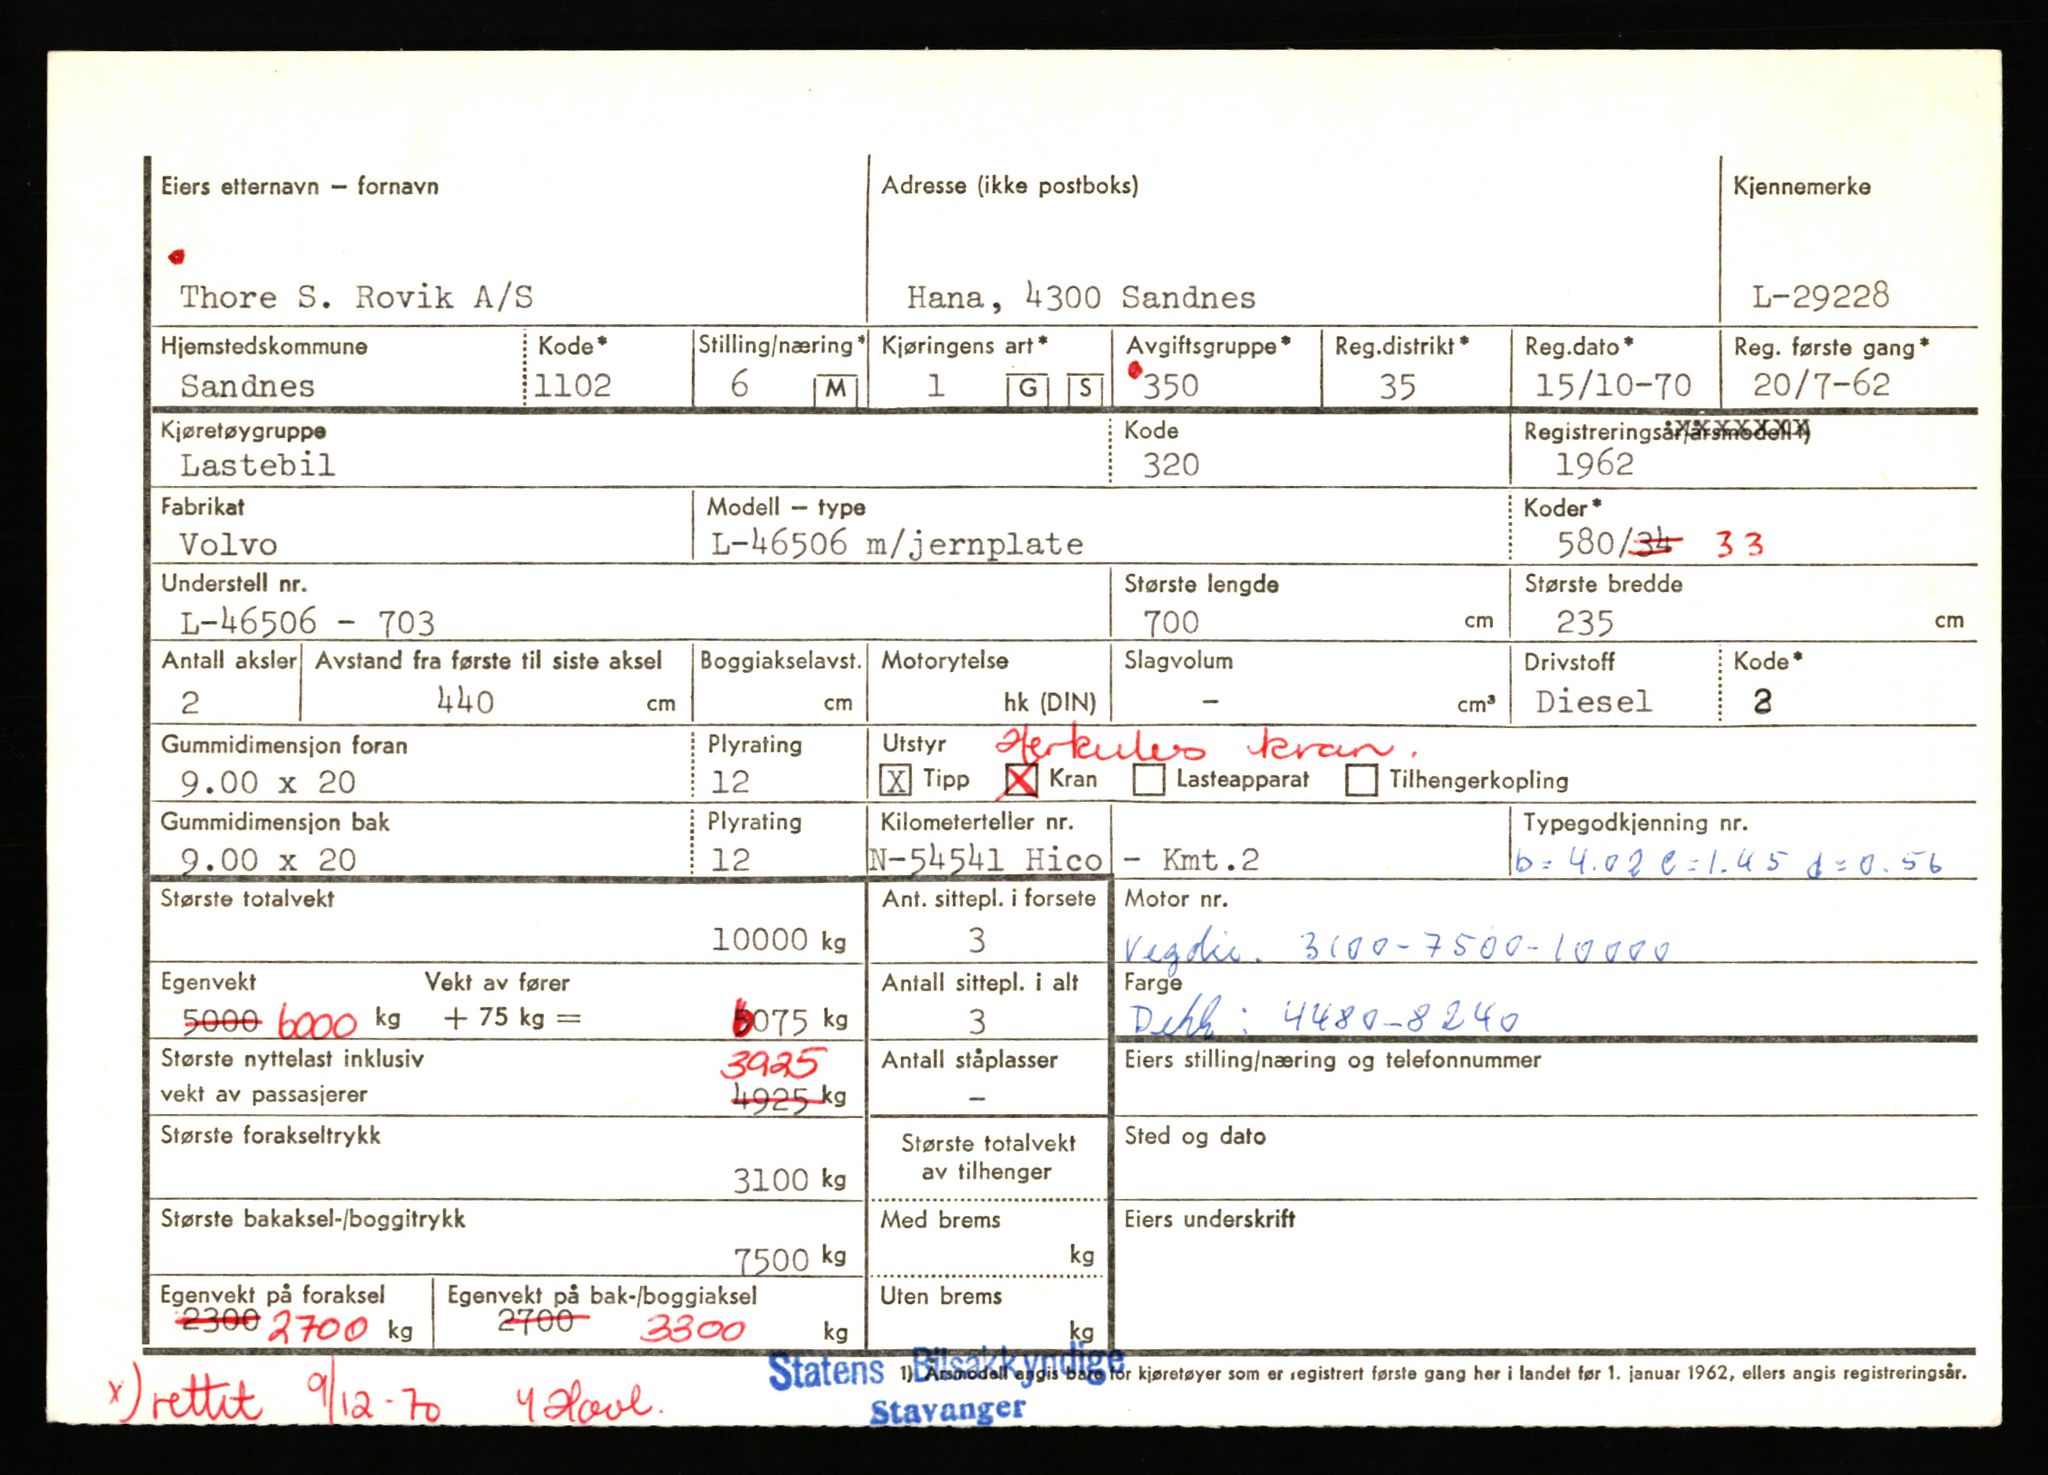 Eiers etternavn – fornavn Adresse (ikke postboks) Kjennemerke
Thore S. Rovik A/S Hana, 4300 Sandnes L-29228
Hjemstedskommune Kode* Stilling/næring* Kjøringens art* Avgiftsgruppe* Reg.distrikt* Reg.dato* Reg. første gang*
Sandnes 1102 6 M 1 G S 350 35 15/10-70 20/7-62
Kjøretøygruppe Kode Registreringsår/årsmodell 1)
Lastebil 320 1962
Fabrikat Modell – type Koder*
Volvo L-46506 m/jernplate 580/34 33
Understell nr. Største lengde Største bredde
L-46506 - 703 700 cm 235 cm
Antall aksler Avstand fra første til siste aksel Boggiakselavst. Motorytelse Slagvolum Drivstoff Kode*
2 440 cm cm hk (DIN) - cm³ Diesel 2
Gummidimensjon foran Plyrating Utstyr Herkules kran.
9.00 x 20 12 X Tipp X Kran Lasteapparat Tilhengerkopling
Gummidimensjon bak Plyrating Kilometerteller nr. Typegodkjenning nr.
9.00 x 20 12 N-54541 Hico - Kmt.2 b=4.02 c=1.45 d=0.56
Største totalvekt Ant. sittepl. i forsete Motor nr.
10000 kg 3 Vegdir. 3100-7500-10000
Egenvekt Vekt av fører Antall sittepl. i alt Farge
5000 6000 kg + 75 kg = 6075 kg 3 Dekk: 4480-8240
Største nyttelast inklusiv 3925 Antall ståplasser Eiers stilling/næring og telefonnummer
vekt av passasjerer 4925 kg -
Største forakseltrykk Største totalvekt Sted og dato
3100 kg av tilhenger
Største bakaksel-/boggitrykk Med brems Eiers underskrift
7500 kg kg
Egenvekt på foraksel Egenvekt på bak-/boggiaksel Uten brems
2300 2700 kg 2700 3300 kg kg
Statens Bilsakkyndige
1) Årsmodell angis bare for kjøretøyer som er registrert første gang her i landet før 1. januar 1962, ellers angis registreringsår.
x) rettet 9/12-70
Stavanger